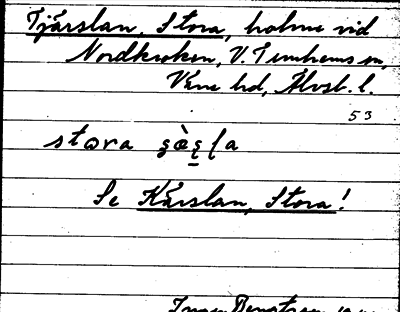 Tjärslan, Stora, holme vid
Nordkroken, V. Tunhems sn,
Väne hd, Älvsb. l.
53
stora
Se Kärslan, Stora!